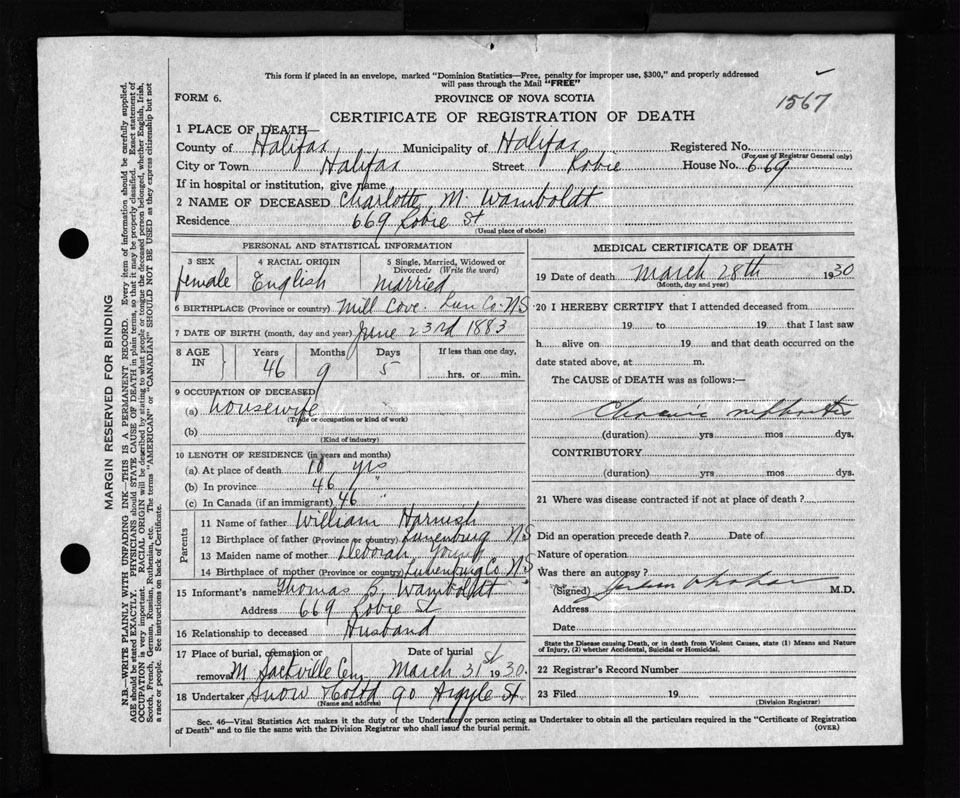 This form if placed in an envelope, marked "Dominion Statistics—Free, penalty for improper use, $300," and properly addressed
will pass through the Mail "FREE"
FORM 6.
PROVINCE OF NOVA SCOTIA
1567
CERTIFICATE OF REGISTRATION OF DEATH
1 PLACE OF DEATH—
County of Halifax Municipality of Halifax Registered No.
(For use of Registrar General only)
City or Town Halifax Street Robie House No. 669
If in hospital or institution, give name
2 NAME OF DECEASED Charlotte M. Wamboldt
Residence 669 Robie St
(Usual place of abode)
PERSONAL AND STATISTICAL INFORMATION
3 SEX 4 RACIAL ORIGIN 5 Single, Married, Widowed or Divorced (Write the word)
female English Married
6 BIRTHPLACE (Province or country) Mill Cove. Lun Co. N.S
7 DATE OF BIRTH (month, day and year) June 23rd 1883
8 AGE IN Years Months Days If less than one day,
46 9 5 hrs. or min.
9 OCCUPATION OF DECEASED
(a) housewife
(Trade or occupation or kind of work)
(b)
(Kind of industry)
10 LENGTH OF RESIDENCE (in years and months)
(a) At place of death 10 yrs
(b) In province 46 "
(c) In Canada (if an immigrant) 46 "
Parents
11 Name of father William Harnish
12 Birthplace of father (Province or country) Lunenburg N S
13 Maiden name of mother Deborah Young
14 Birthplace of mother (Province or country) Lunenburg Co. N S
15 Informant's name Thomas B. Wamboldt
Address 669 Robie St
16 Relationship to deceased Husband
17 Place of burial, cremation or removal Date of burial
M. Sackville Cem March 31st 1930.
18 Undertaker Snow & Co Ltd 90 Argyle St.
(Name and address)
MEDICAL CERTIFICATE OF DEATH
19 Date of death March 28th 1930
(Month, day and year)
20 I HEREBY CERTIFY that I attended deceased from
19 to 19 that I last saw
h alive on 19 and that death occurred on the
date stated above, at m.
The CAUSE of DEATH was as follows:—
Chronic nephritis
(duration) yrs mos dys.
CONTRIBUTORY
(duration) yrs mos dys.
21 Where was disease contracted if not at place of death?
Did an operation precede death? Date of
Nature of operation
Was there an autopsy?
(Signed) M.D.
Address
Date
State the Disease causing Death, or in death from Violent Causes, state (1) Means and Nature
of Injury, (2) whether Accidental, Suicidal or Homicidal.
22 Registrar's Record Number
23 Filed 19
(Division Registrar)
Sec. 46—Vital Statistics Act makes it the duty of the Undertaker or person acting as Undertaker to obtain all the particulars required in the "Certificate of Registration
of Death" and to file the same with the Division Registrar who shall issue the burial permit.
(OVER)
MARGIN RESERVED FOR BINDING
N.B.—WRITE PLAINLY WITH UNFADING INK—THIS IS A PERMANENT RECORD. Every item of information should be carefully supplied.
AGE should be stated EXACTLY. PHYSICIANS should STATE CAUSE OF DEATH in plain terms, so that it may be properly classified. Exact statement of
OCCUPATION is very important. RACIAL ORIGIN will be described by stating to what people or tongue the deceased person belonged, whether English, Irish,
Scotch, French, German, Russian, Ruthenian, etc. The terms "AMERICAN" or "CANADIAN" SHOULD NOT BE USED as they express citizenship but not
a race or people. See instructions on back of Certificate.